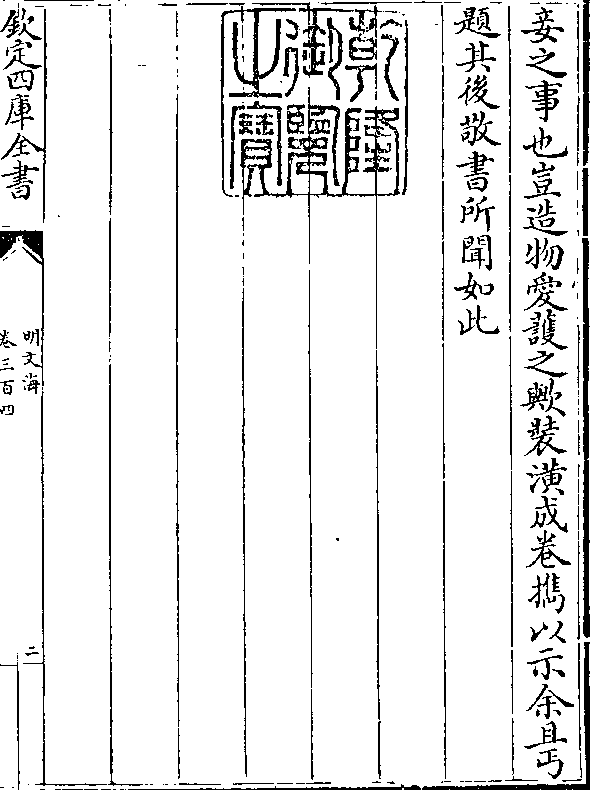 妾之事也豈造物愛護之歟裝潢成卷攜以示余且丐
題其後敬書所聞如此
乾隆御覽之寶
欽定四庫全書
明文海
卷三百四
二